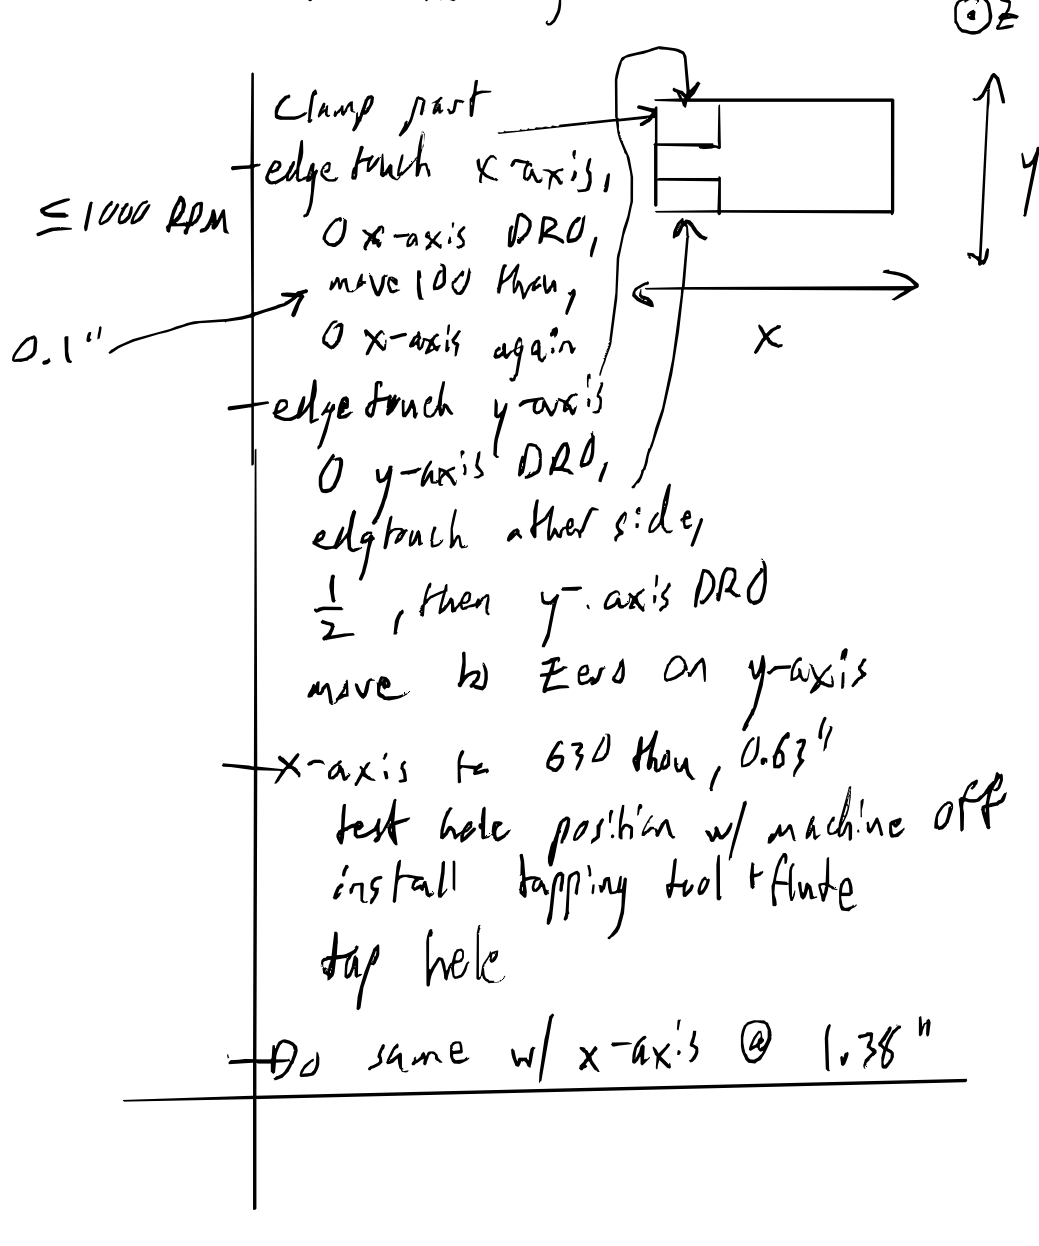 ⊙ z
clamp part
edge touch x-axis,
≤ 1000 RPM
0 x-axis DRO,
move 100 thou,
0.1"
0 x-axis again
edge touch y-axis
0 y-axis DRO,
edgtouch other side,
1/2, then y-axis DRO
move to zero on y-axis
x-axis to 630 thou, 0.63"
test hole position w/ machine off
install tapping tool + flute
tap hole
Do same w/ x-axis @ 1.38"
y
x